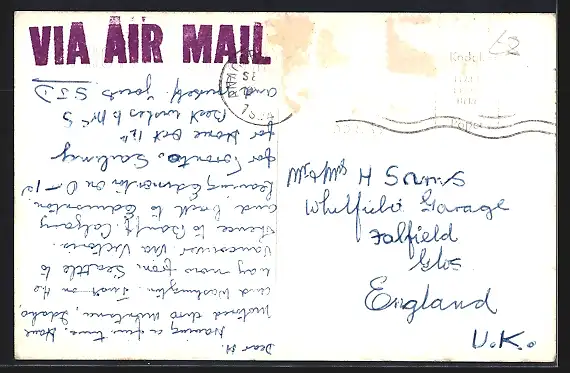 VIA AIR MAIL
Dear H.
Having a fine time. Have
motored thro Montana, Idaho,
and Washington. Just on the
way now from Seattle to
Vancouver via Victoria.
thence to Banff, Calgary
and back to Edmonton.
Leaving Edmonton on 0-12
for Toronto. Sailing
for Home Oct 12th
Best wishes to Mrs S
and yourself. Yours S J
Mr & Mrs H
Garage
Falfield
Glos
England
U.K.
62